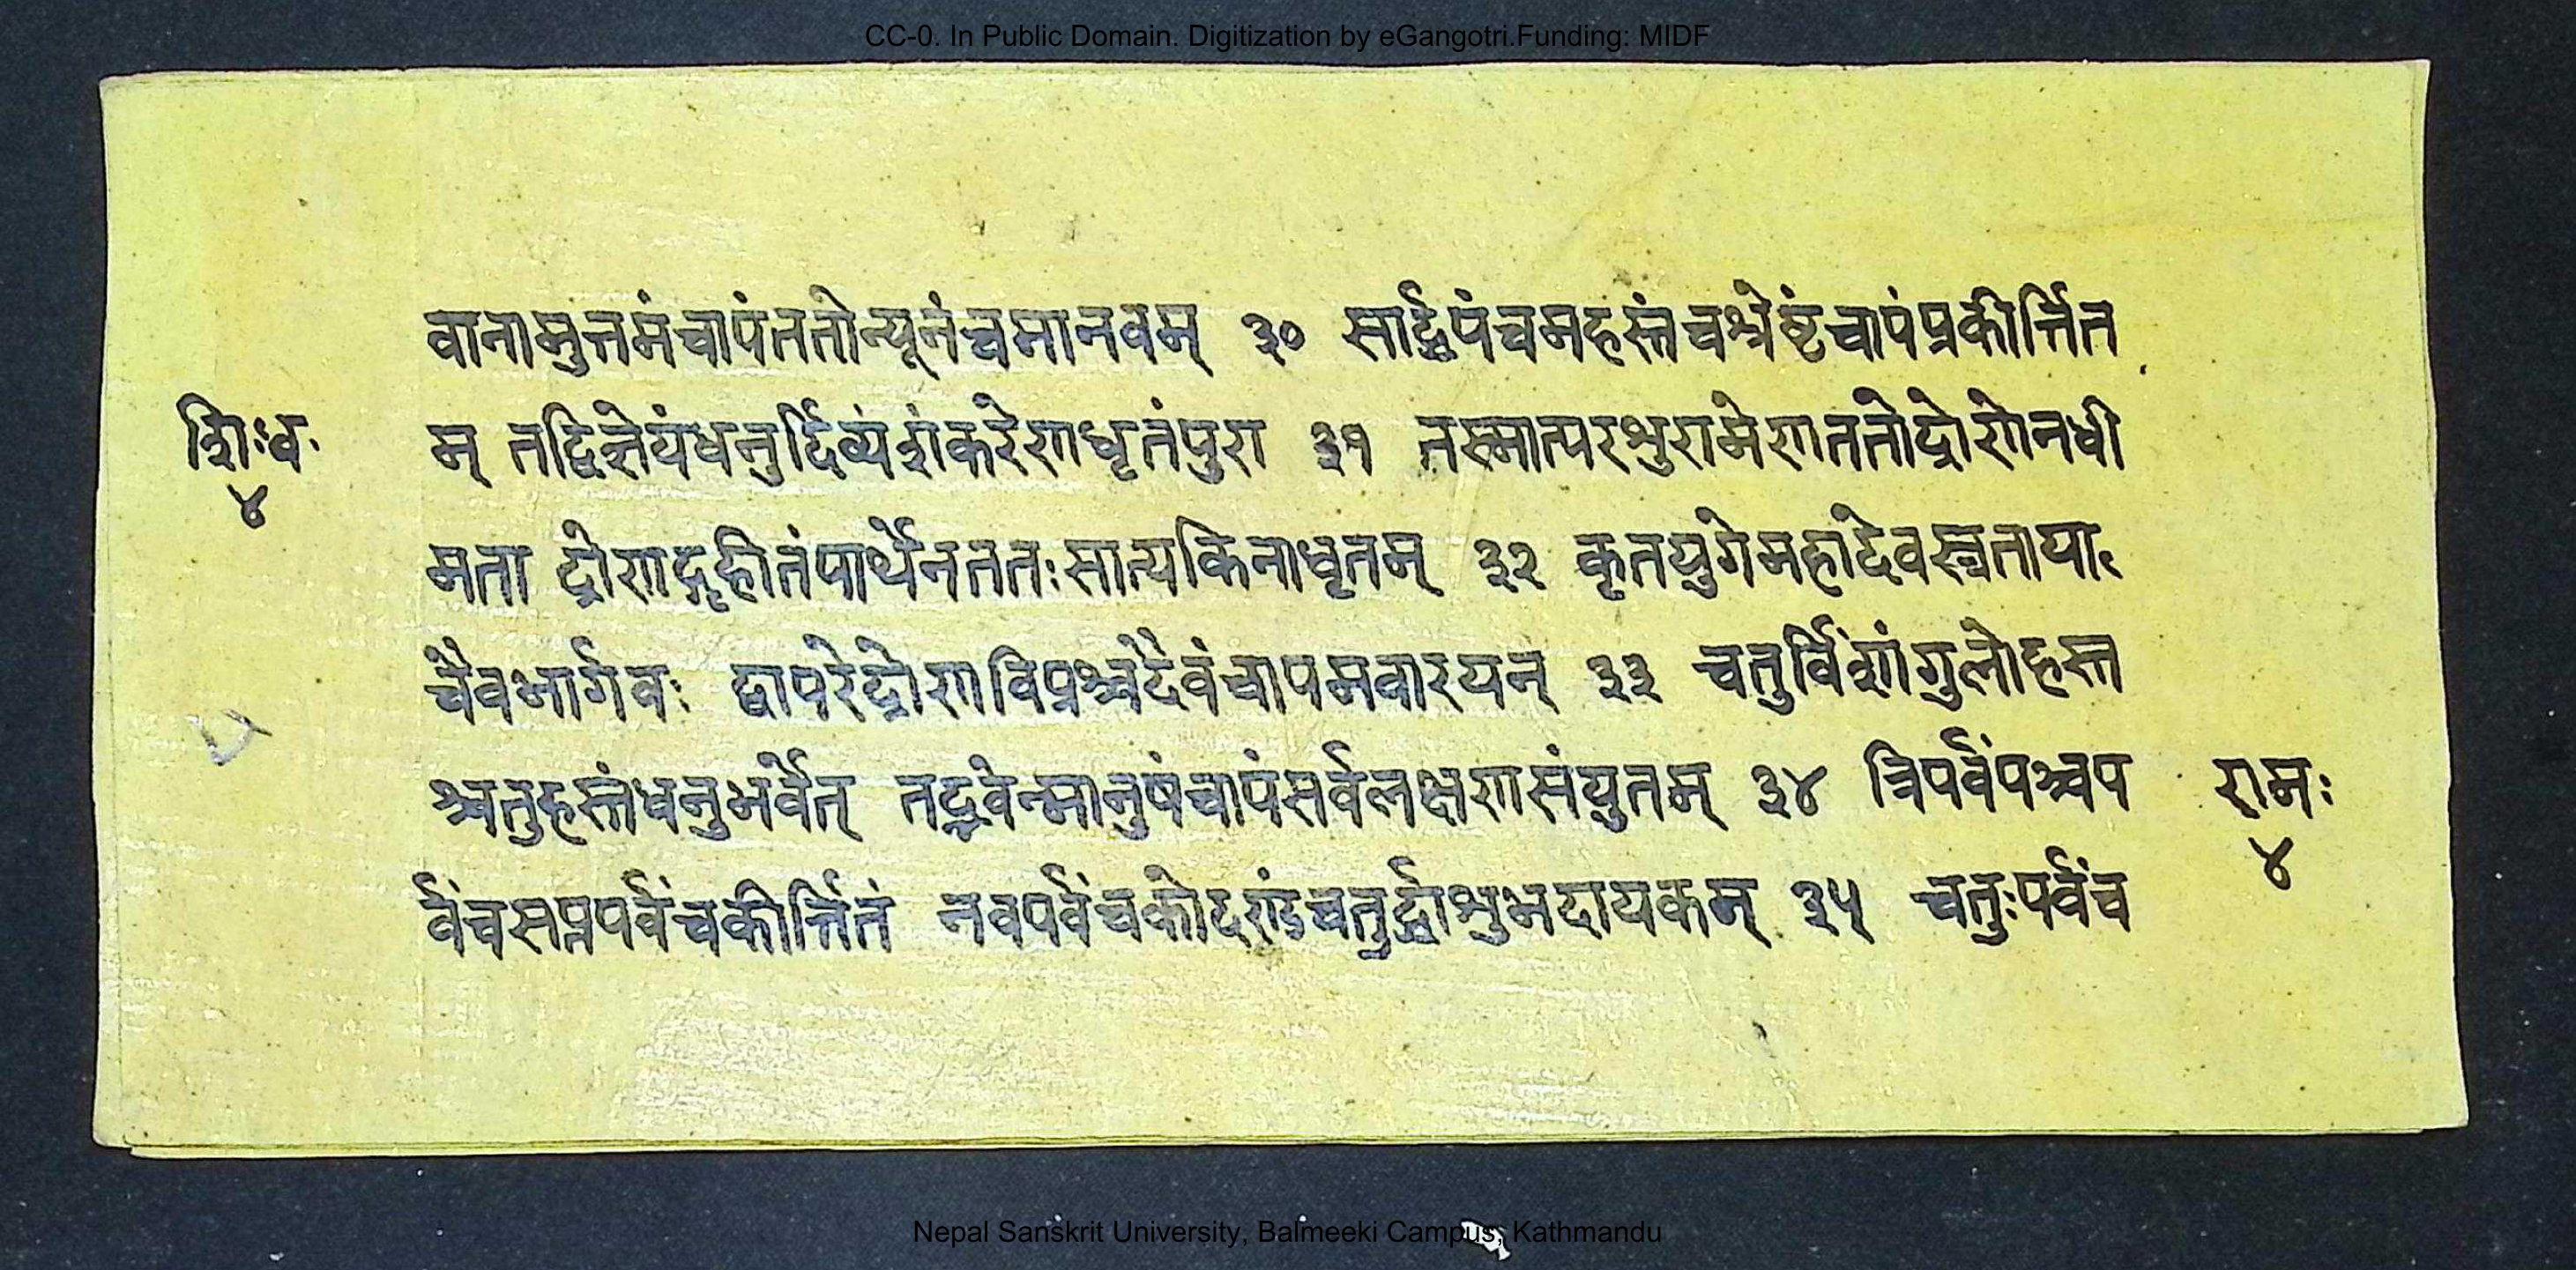 CC-0. In Public Domain. Digitization by eGangotri.Funding: MIDF
वानामुत्तमंचापंततोन्यूनंचमानवम् ३० सार्द्धपंचमहस्तंचश्रेष्टंचापंप्रकीर्त्तित
म् तद्विज्ञेयंधनुर्दिव्यंशंकरेणधृतंपुरा ३१ तस्मात्परशुरामेणततोद्रोणेनधी
शिःध॰
४
मता द्रोणाद्गृहीतंपार्थेनततःसात्यकिनाधृतम् ३२ कृतयुगेमहादेवस्त्रेतायां
चैवभार्गवः द्वापरेद्रोणविप्रश्चदैवंचापमवारयन् ३३ चतुर्विंशांगुलोहस्त
श्चतुहस्तंधनुर्भवेत् तद्भवेन्मानुषंचापंसर्वलक्षणसंयुतम् ३४ त्रिपर्वंपञ्चप
र्वंचसप्तपर्वंचकीर्त्तितं नवपर्वंचकोदण्डंचतुर्द्धाशुभदायकम् ३५ चतुःपर्वंच
रामः
४
Nepal Sanskrit University, Balmeeki Campus, Kathmandu